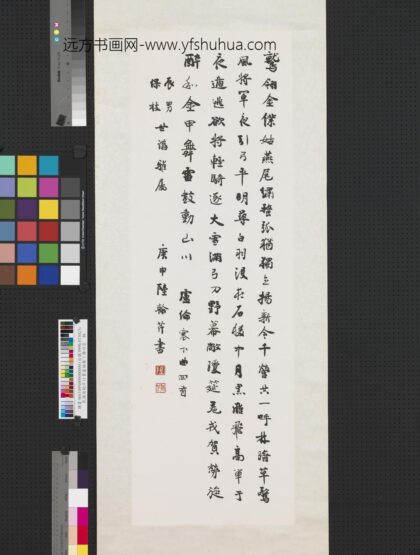 远方书画网-www.yfshuhua.com
鷲翎金僕姑燕尾繡蝥弧獨立揚新令千營共一呼林暗草驚
風將軍夜引弓平明尋白羽沒在石稜中月黑雁飛高單于
夜遁逃欲將輕騎逐大雪滿弓刀野幕敞瓊筵羌戎賀勞旋
醉和金甲舞雷鼓動山川 盧綸塞下曲四首
辰男
保枝 世講雅屬
庚申陸翰芹書